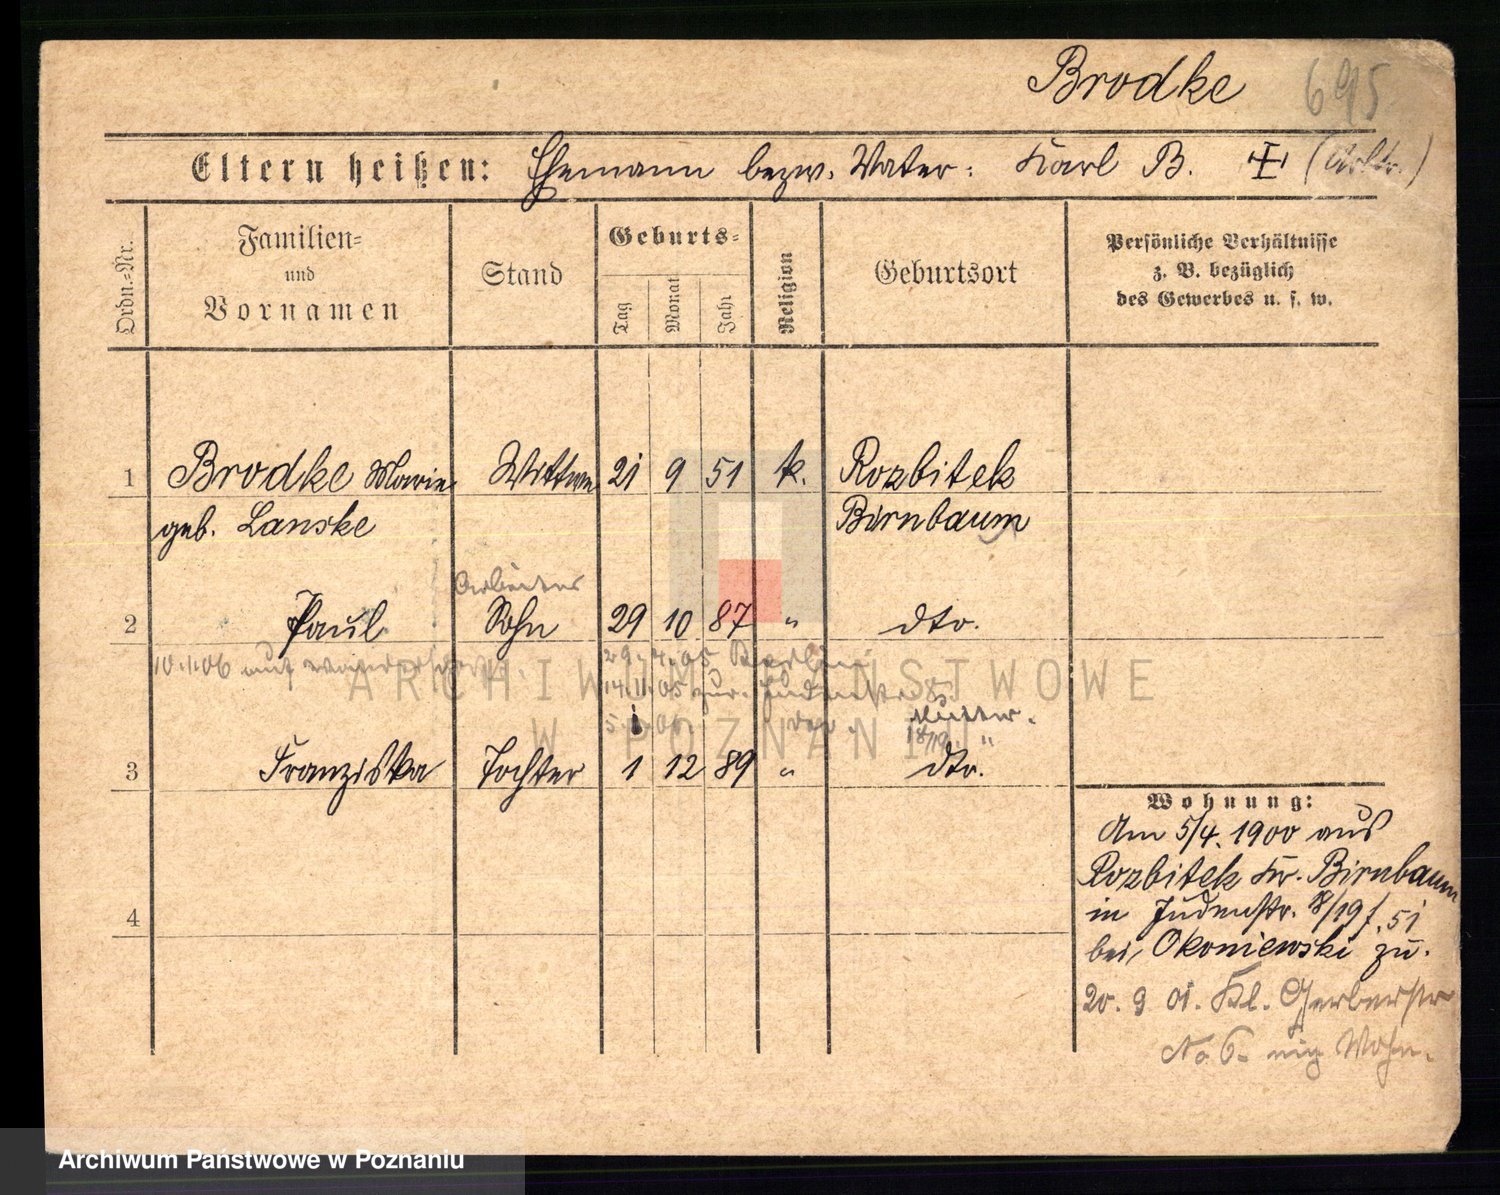 Brodke 695
Eltern heißen: Ehemann bezw. Vater: Karl B. (Arbtr.)
Ordn.-Nr.
Familien-
und
Vornamen
Stand
Geburts-
Tag
Monat
Jahr
Religion
Geburtsort
Persönliche Verhältnisse
z. B. bezüglich
des Gewerbes u. s. w.
1 Brodke Marie Wittwe 21 9 51 k. Rozbitek
geb. Lanske Birnbaum
Arbeiter
2 Paul Sohn 29 10 87 " dto.
10.1.06 auf Wanderschaft
29.4.05 Berlin
14.11.05 zur. Judenstr.
Mutter.
18/19 "
3 Franziska Tochter 1 12 89 " dto.
4
Wohnung:
Am 5/4. 1900 aus
Rozbitek Kr. Birnbaum
in Judenstr. 18/19 f. 51
bei Okoniewski zu.
20. 9 01. Kl. Gerberstr
No 6 eig Wohn.
ARCHIWUM PAŃSTWOWE
W POZNANIU
Archiwum Państwowe w Poznaniu